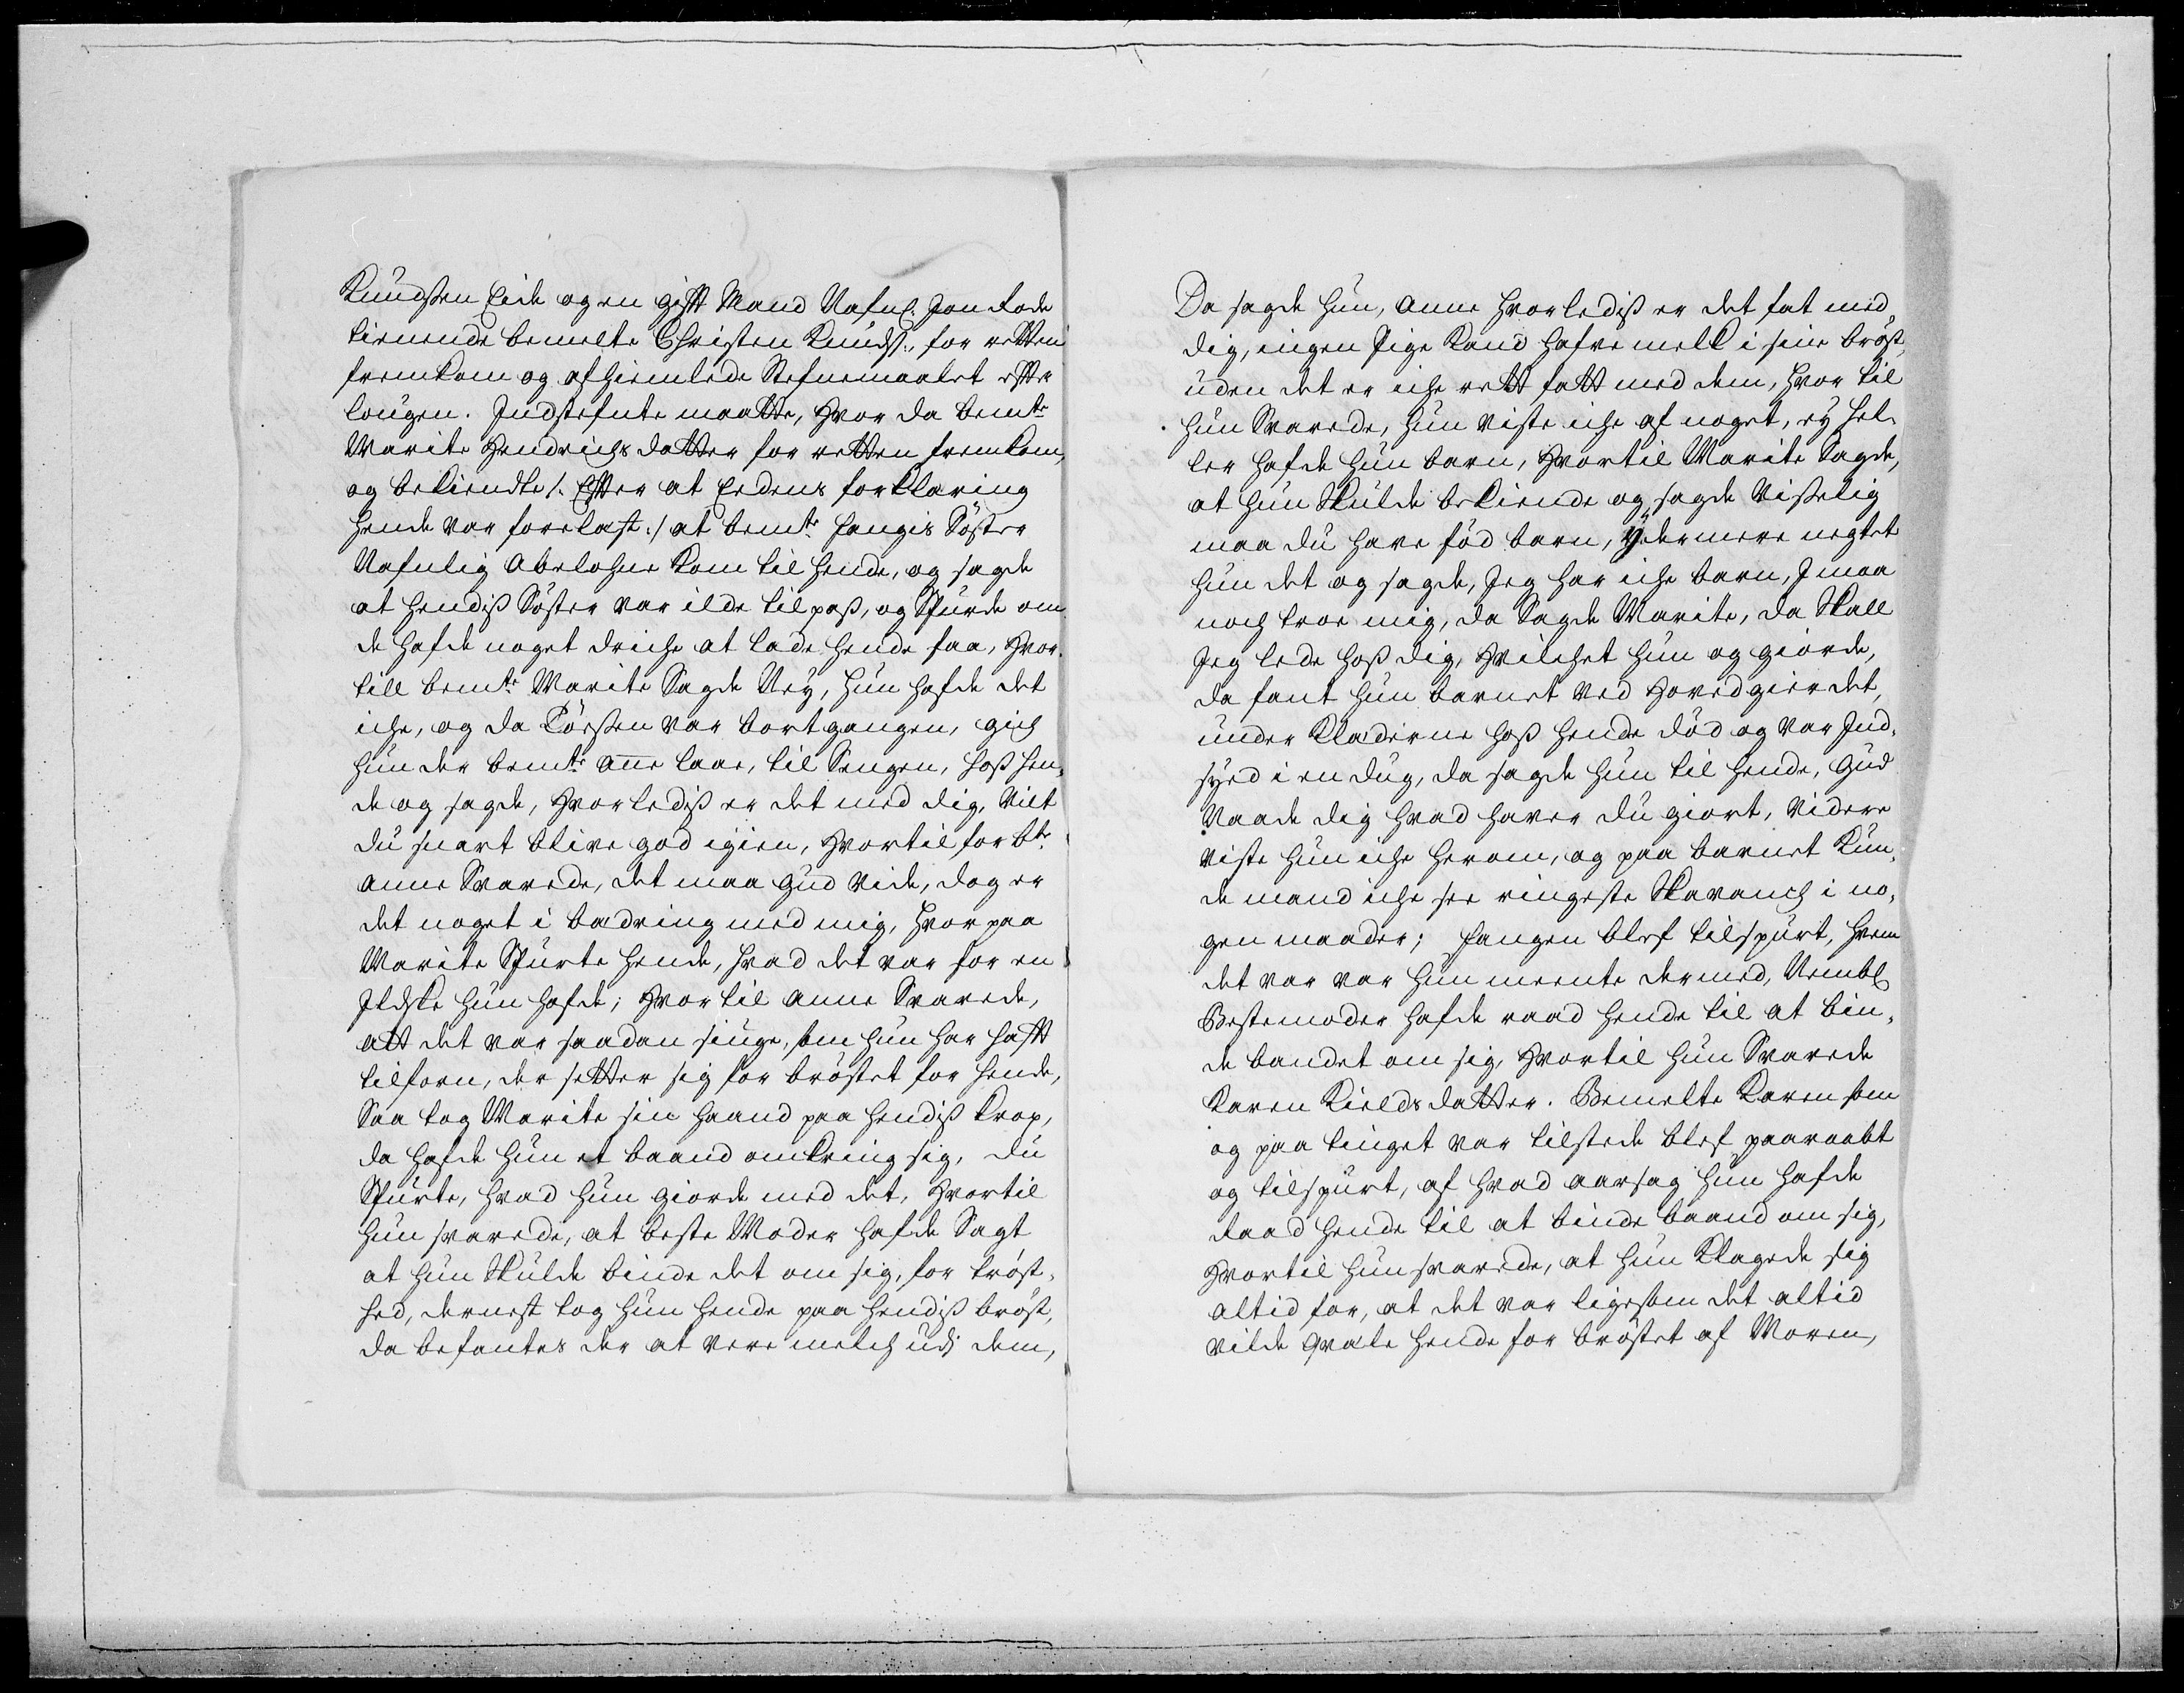 Knudsen Eide og en gifft Mand Nafnl. Jon Rode
tienende bemelte Christen Knuds:, for retten
fremkom og afhiemlede Stefnemaalet effter
lougen. Indstefnte maatte, hvor da bemte
Marite Hendrichsdatter for retten fremkom,
og bekiendte /: Effter at Eedens forklaring
hende var forelæst :/ at bemte fangis Söster
Nafnlig Abelohne kom til hende, og sagde
at hendiß Söster var ilde til paß, og Spurde om
de hafde noget driche at lade hende faa, hvor
till bemte Marite Sagde Ney, hun hafde det
iche, og da Tösßen var bortgangen, gich
hun der bemte Anne laae, til Sengen, hoß hen,
de og sagde, hvorlediß er det med dig, Vilt
du snart blive god igien, hvortil forbte
Anne Svarede, det maa Gud vide, dog er
det noget i bædring med mig, hvor paa
Marite Spurte hende, hvad det var for en
Ildske hun hafde; hvor til Anne Svarede,
att det var saadan siuge, som hun har hafft
tilforn, der setter sig for bröstet for hende,
Saa tog Marite sin haand paa hendiß krop,
da hafde hun et baand omkring sig, du
Spurte, hvad hun giorde med det, hvortil
hun svarede, at beste Moder hafde Sagt
at hun Skulde binde det om sig, for tröst,
hed, dernest tog hun hende paa hendiß bröst,
da befantes der at vere melch udj dem,
Da sagde hun, Anne hvorlediß er det fat med
dig, ingen Pige kand hafve melk i sine bröst,
uden det er iche rett fatt med dem, hvor til
hun Svarede, hun viste iche af noget, ey hel
ler hafde hun barn, hvortil Marite Sagde,
at hun Skulde bekiende og sagde Visselig
maa du have föd barn, ydermere negtet
hun det og sagde, Jeg har iche barn, I maa
noch troe mig, da Sagde Marite, da Skall
Jeg lede hoß dig, hvilchet hun og giorde,
da fant hun barnet ved hovedgierdet,
under Klæderne hoß hende död og var Ind,
syed i en dug, da sagde hun til hende, Gud
Naade dig hvad haver du giort, videre
viste hun iche herom, og paa barnet kun,
de mand iche see ringeste Skavanch i no,
gen maader; fangen blef tilspurt, hvem
det var var hun meente dermed, Nembl
Bestemoder hafde raad hende til at bin,
de bandet om sig, hvortil hun Svarede
Karen Kieldsdatter. Bemelte Karen som
og paa tinget var tilstede blef paaraabt
og tilspurt, af hvad aarsag hun hafde
raad hende til at binde baand om sig,
hvortil hun svarede, at hun klagede sig
altid for, at det var ligesom det altid
vilde qvæle hende for bröstet af Moren,